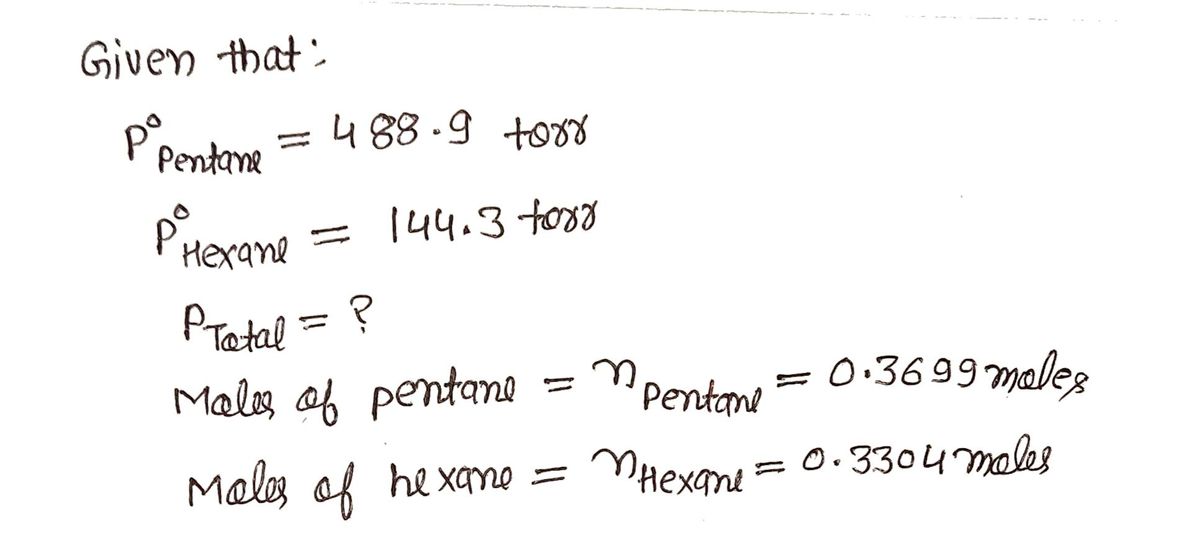 Given that:
P°Pentane = 488.9 torr
P°Hexane = 144.3 torr
PTotal = ?
Moles of pentane = nPentane = 0.3699 moles
Moles of hexane = nHexane = 0.3304 moles